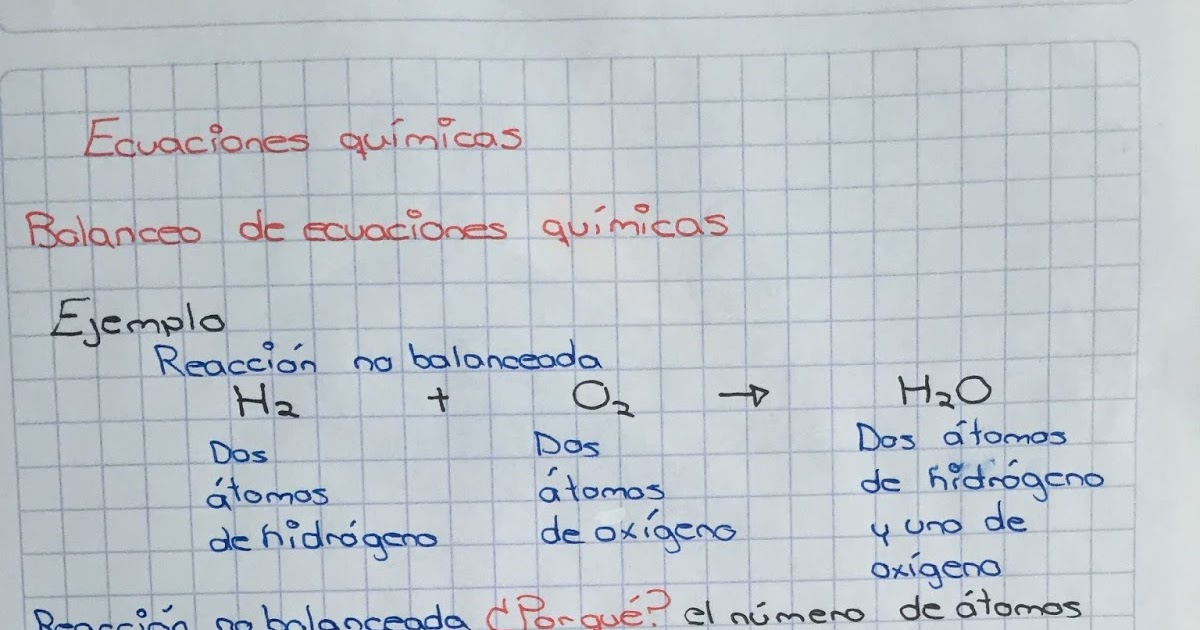 Ecuaciones químicas
Balanceo de ecuaciones químicas
Ejemplo
Reacción no balanceada
H₂ + O₂ → H₂O
Dos
átomos
de hidrógeno
Dos
átomos
de oxígeno
Dos átomos
de hidrógeno
y uno de
oxígeno
Reacción no balanceada ¿Por qué? el número de átomos